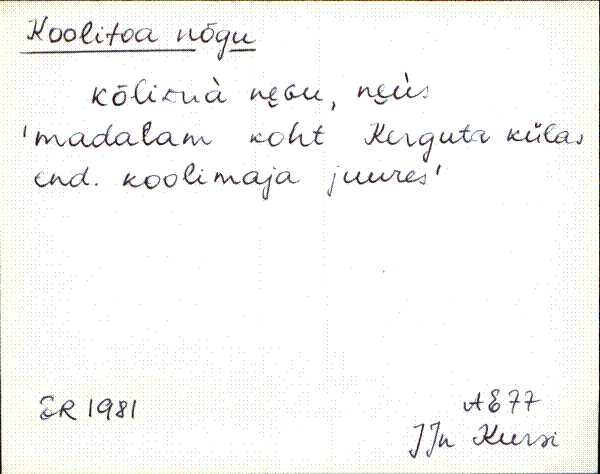 Koolitoa nõgu
kōlituà nẹɢu, nẹùs
'madalam koht Kerguta külas
end. koolimaja juures'
ER 1981
AE 77
JJn Kursi